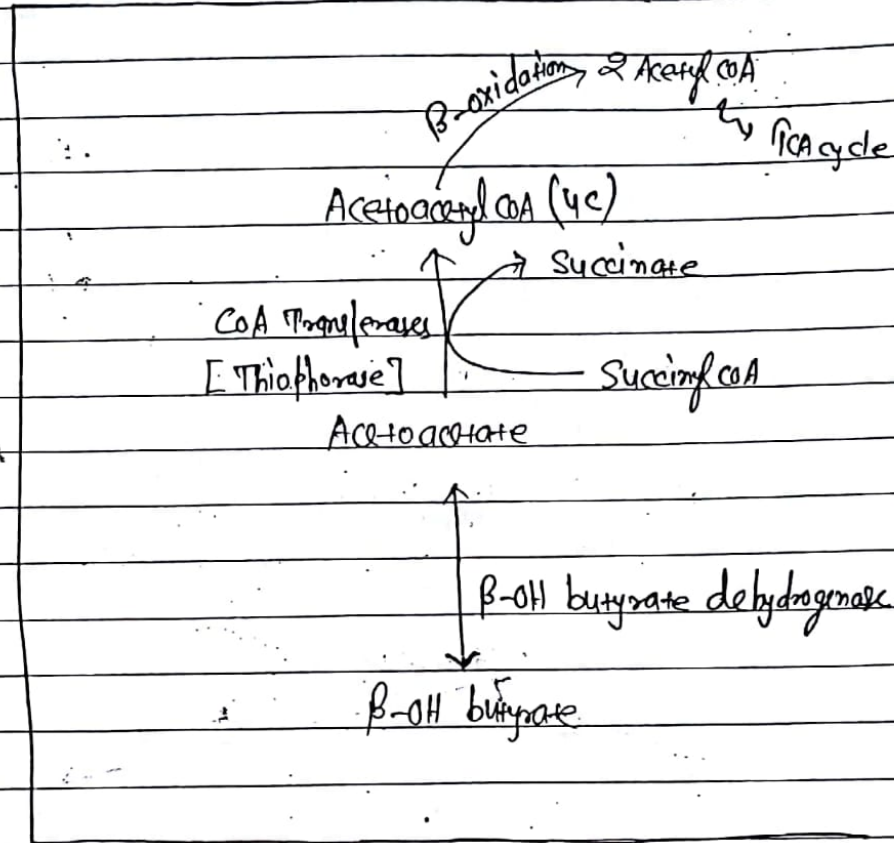 β-oxidation
2 Acetyl CoA
TCA cycle
Acetoacetyl CoA (4C)
Succinate
CoA Transferases
[Thiophorase]
Succinyl CoA
Acetoacetate
β-OH butyrate dehydrogenase
β-OH butyrate